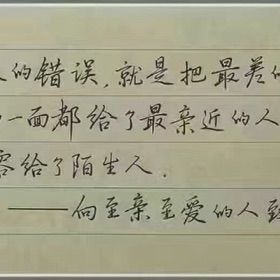 的错误,就是把最差的
一面都给了最亲近的人
容给了陌生人.
——向至亲至爱的人致